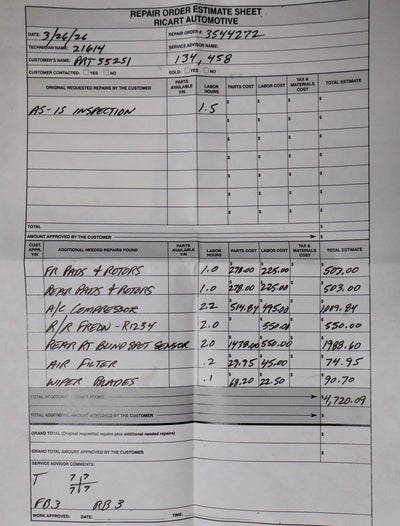 REPAIR ORDER ESTIMATE SHEET
RICART AUTOMOTIVE
DATE: 3/26/26 REPAIR ORDER #: 3544272
TECHNICIAN NAME: 21614 SERVICE ADVISOR NAME:
CUSTOMER'S NAME: PRT 55251 134,458
CUSTOMER CONTACTED: YES NO SOLD: YES NO
ORIGINAL REQUESTED REPAIRS BY THE CUSTOMER PARTS AVAILABLE Y/N LABOR HOURS PARTS COST LABOR COST TAX & MATERIALS COST TOTAL ESTIMATE
AS-IS INSPECTION 1.5 $ $ $ $
TOTAL
AMOUNT APPROVED BY THE CUSTOMER $
CUST. APPR. Y/N ADDITIONAL NEEDED REPAIRS FOUND PARTS AVAILABLE Y/N LABOR HOURS PARTS COST LABOR COST TAX & MATERIALS COST TOTAL ESTIMATE
FR PADS & ROTORS 1.0 278.00 225.00 503.00
REAR PADS & ROTORS 1.0 278.00 225.00 503.00
A/C COMPRESSOR 2.2 514.84 495.00 1009.84
R/R FREON - R1234 2.0 550.00 550.00
REAR RT BLIND SPOT SENSOR 2.0 1438.00 550.00 1988.60
AIR FILTER .2 29.95 45.00 74.95
WIPER BLADES .1 68.20 22.50 90.70
TOTAL ADDITIONAL FOUND 4,720.09
TOTAL ADDITIONAL AMOUNT APPROVED BY THE CUSTOMER
GRAND TOTAL (Original requested repairs plus additional needed repairs) $
GRAND TOTAL AMOUNT APPROVED BY THE CUSTOMER $
SERVICE ADVISOR COMMENTS:
T 7 7
7 7
FB3 RB3
WORK APPROVED: DATE: TIME: